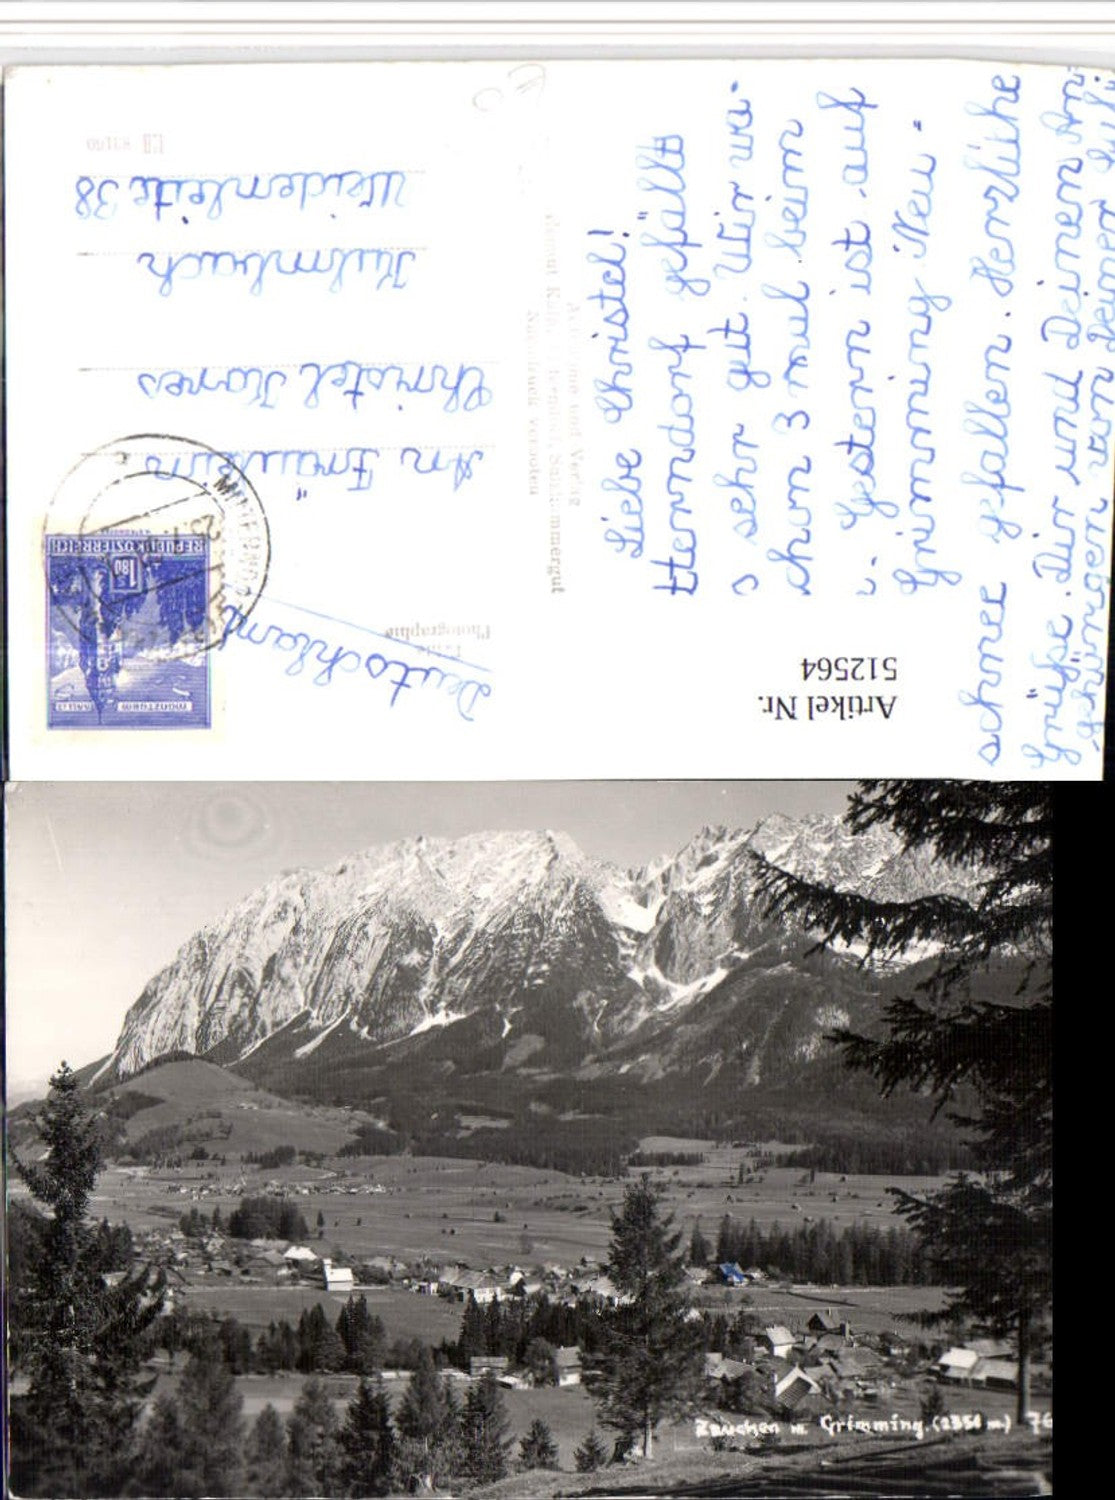 Liebe Christel!
tterndorf gefällt
s sehr gut. Wir wa-
chon 3 mal beim
Gestern ist auf
Grimming Neu-
schnee gefallen. Herzliche
Grüße. Dir und Deinen An-
gehörigen von Deiner
Deutschland
An Fräulein
Christel
Kulmbach
Weidenleite 38
Echte
Photographie
Aufnahme und Verlag
Salzkammergut
Nachdruck verboten
83100
REPUBLIK ÖSTERREICH
1.80
MÜNZTURM
HALL
Artikel Nr.
512564
Zauchen m. Grimming. (2351 m.) 76